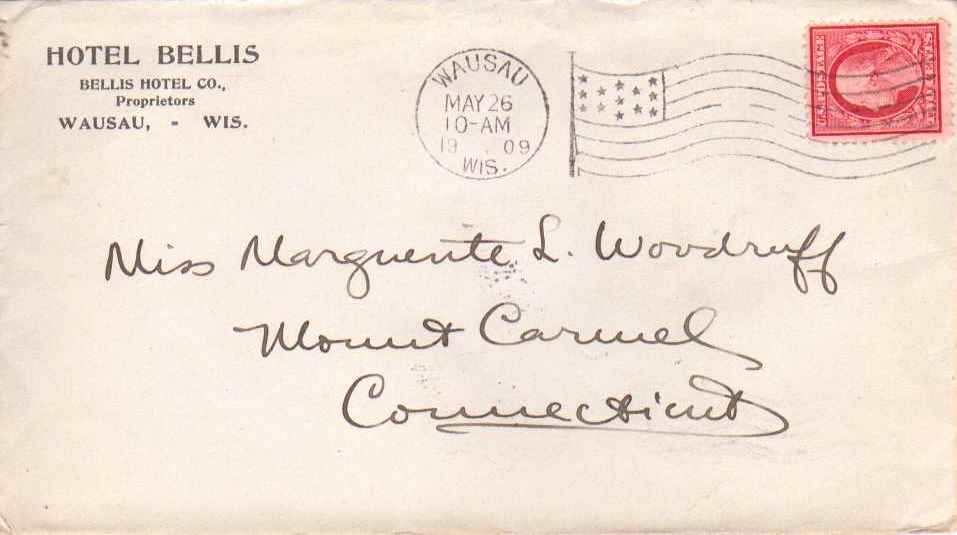 HOTEL BELLIS
BELLIS HOTEL CO.,
Proprietors
WAUSAU, - WIS.
WAUSAU
MAY 26
10-AM
19 09
WIS.
Miss Marguerite L. Woodruff
Mount Carmel
Connecticut